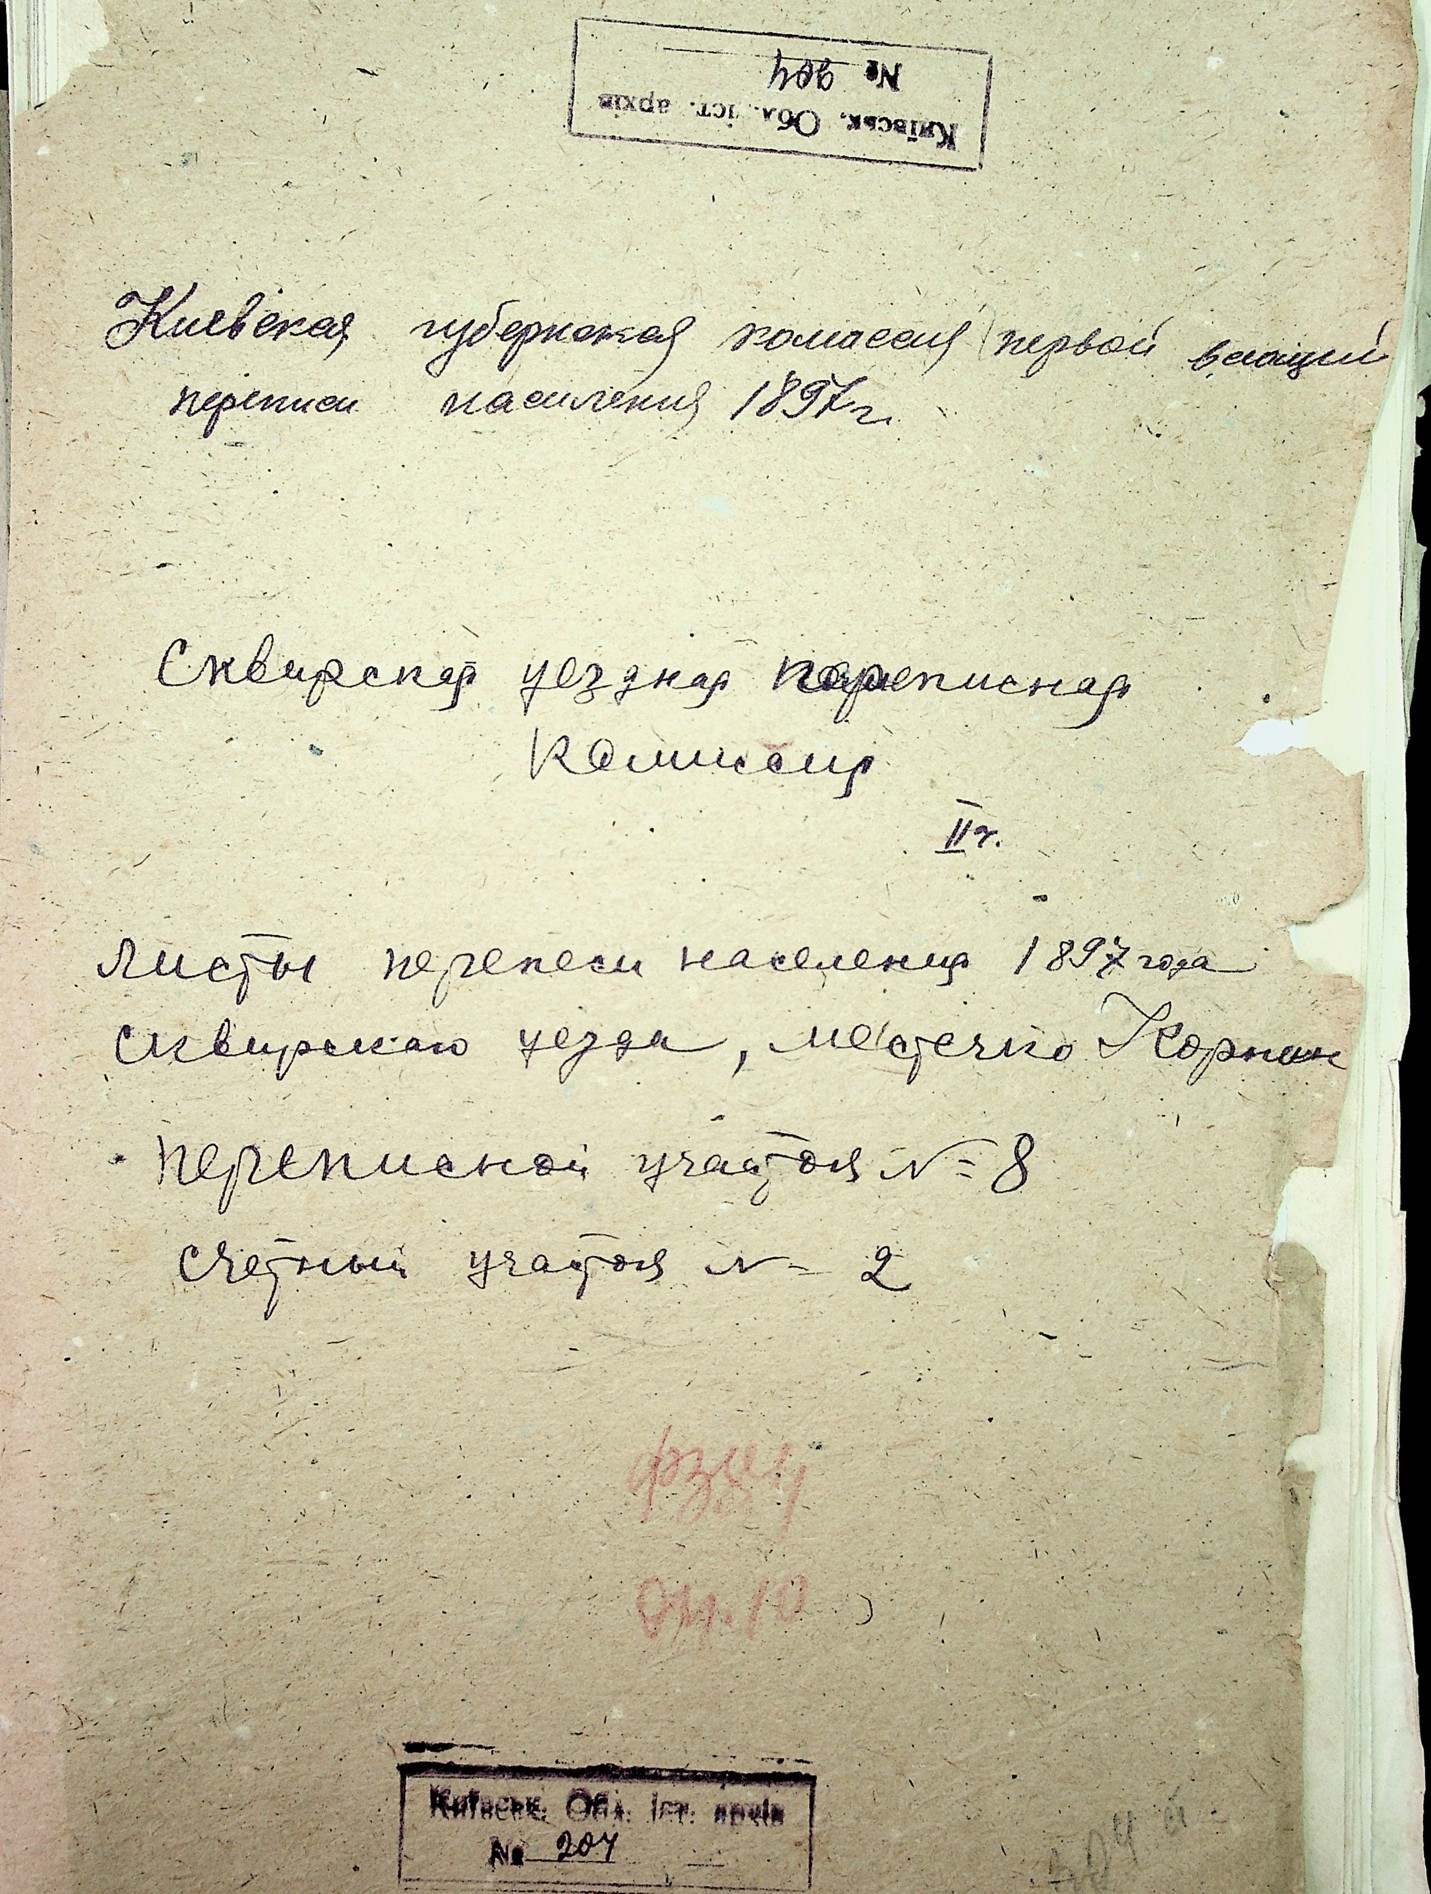 Київськ. Обл. іст. архів
№ 204
Киевская губернская комиссия первой всеощей
переписи населения 1897 г.
Сквирская уездная переписная
комиссия
II г.
Листы переписи населения 1897 года
Сквирского уезда, местечко Корнин
переписной участок № 8
счетный участок № 2
оп. 10
Київськ. Обл. іст. архів
№ 204